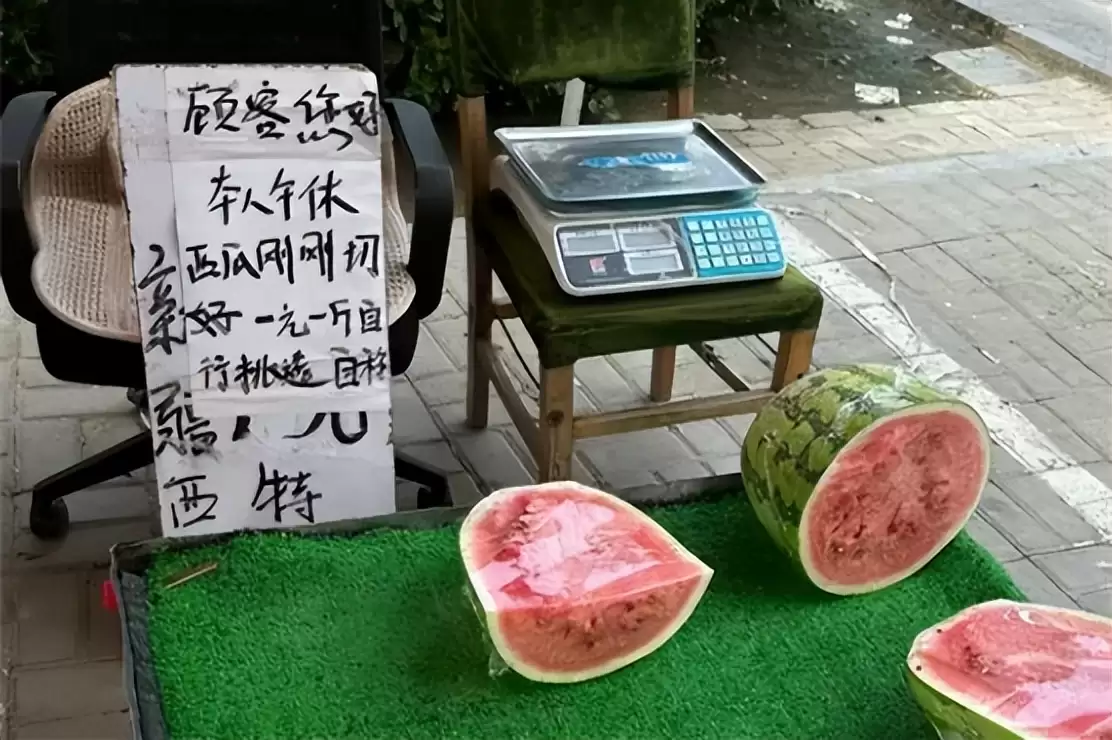 顾客您好
本人午休
西瓜刚刚切
好一元一斤自
行挑选自称
元
西
特